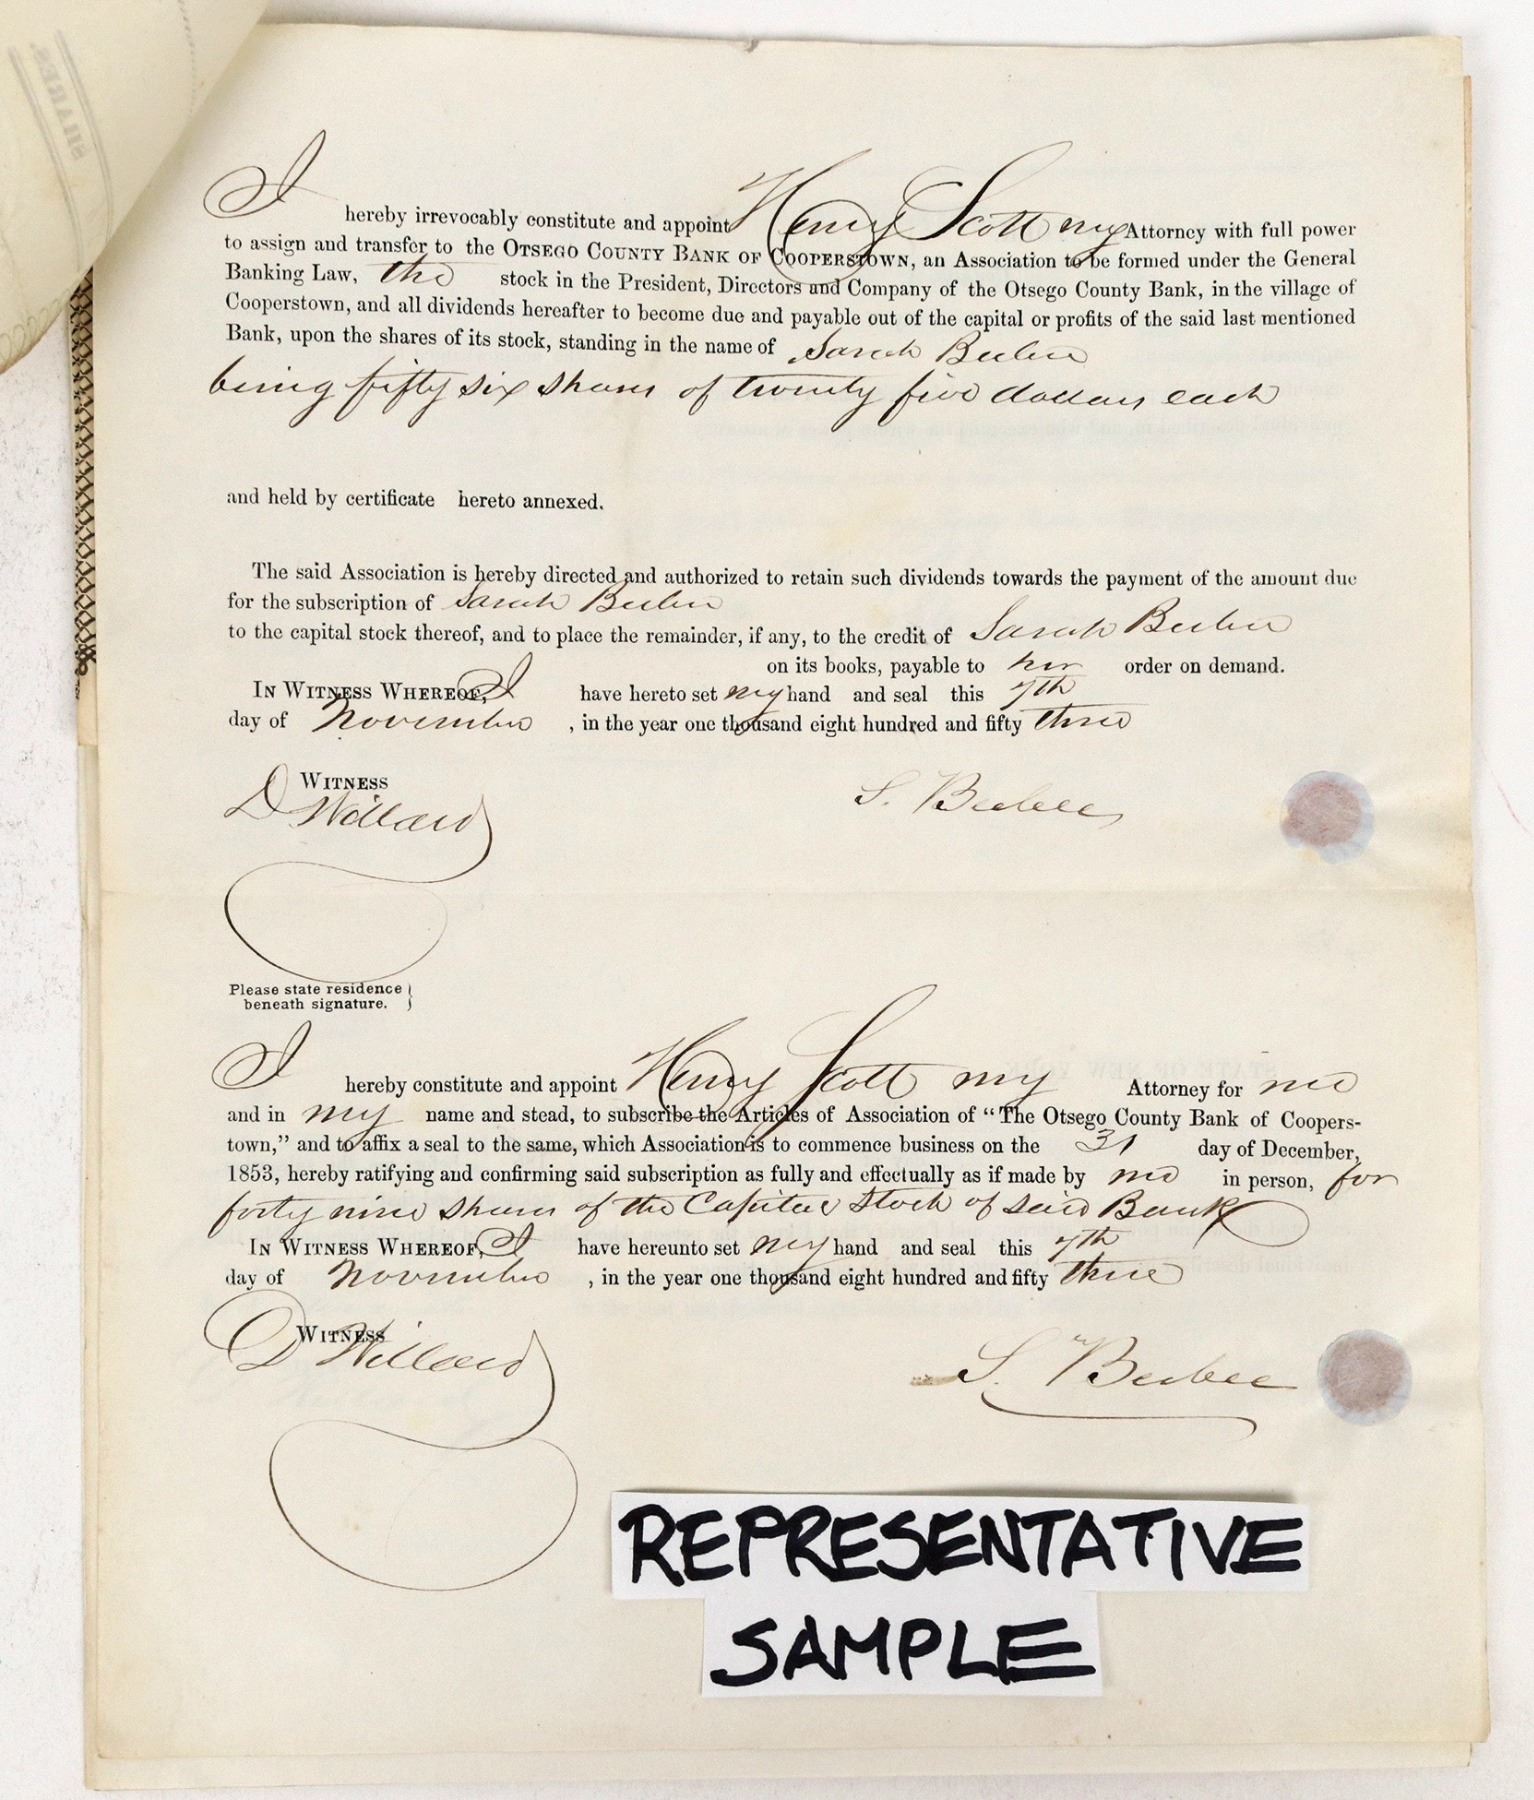 SHARES.
I hereby irrevocably constitute and appoint Henry Scott my Attorney with full power
to assign and transfer to the OTSEGO COUNTY BANK OF COOPERSTOWN, an Association to be formed under the General
Banking Law, the stock in the President, Directors and Company of the Otsego County Bank, in the village of
Cooperstown, and all dividends hereafter to become due and payable out of the capital or profits of the said last mentioned
Bank, upon the shares of its stock, standing in the name of Sarah Beebee
being fifty six shares of twenty five dollars each
and held by certificate hereto annexed.
The said Association is hereby directed and authorized to retain such dividends towards the payment of the amount due
for the subscription of Sarah Beebee
to the capital stock thereof, and to place the remainder, if any, to the credit of Sarah Beebee
on its books, payable to her order on demand.
IN WITNESS WHEREOF, I have hereto set my hand and seal this 7th
day of November , in the year one thousand eight hundred and fifty three
WITNESS
D Willard S. Beebee
Please state residence
beneath signature.
I hereby constitute and appoint Henry Scott my Attorney for me
and in my name and stead, to subscribe the Articles of Association of “The Otsego County Bank of Coopers-
town,” and to affix a seal to the same, which Association is to commence business on the 31 day of December,
1853, hereby ratifying and confirming said subscription as fully and effectually as if made by me in person, for
forty nine shares of the Capital Stock of said Bank
IN WITNESS WHEREOF, I have hereunto set my hand and seal this 7th
day of November , in the year one thousand eight hundred and fifty three
WITNESS
D Willard S. Beebee
REPRESENTATIVE
SAMPLE